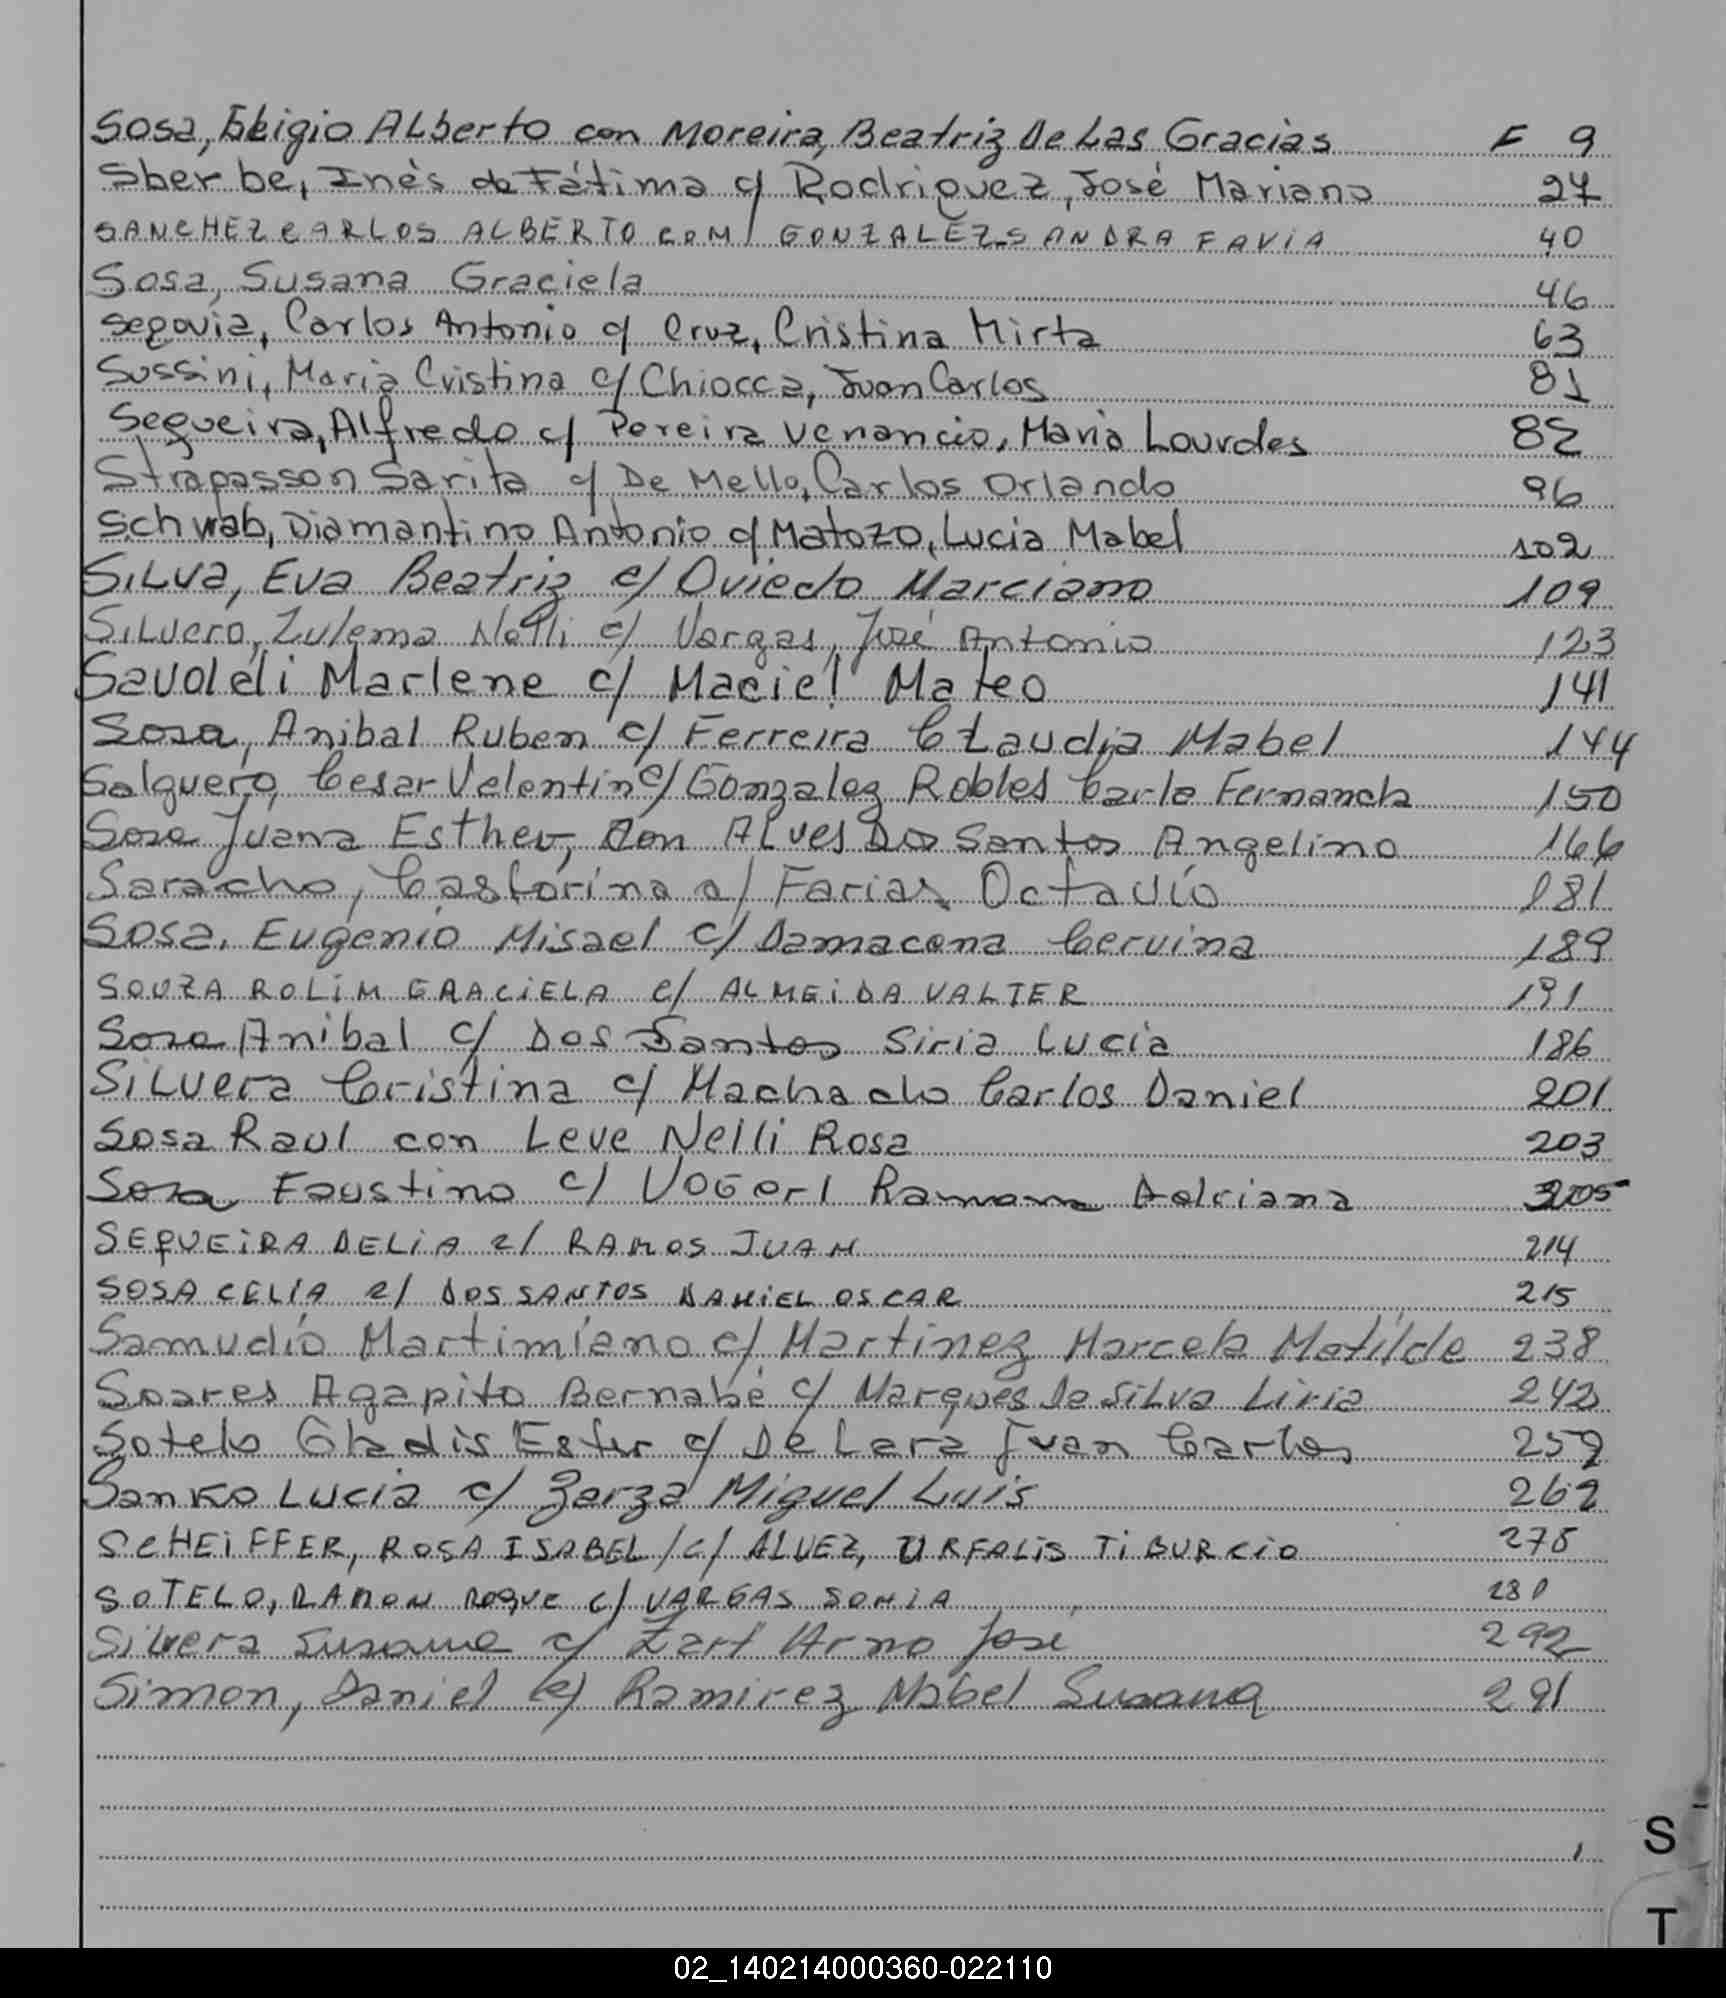 Sosa, Eligio Alberto con Moreira, Beatriz De Las Gracias F 9
Sberbe, Inés de Fátima c/ Rodriguez, José Mariano 27
SANCHEZ CARLOS ALBERTO COM/ GONZALEZ SANDRA FAVIA 40
Sosa, Susana Graciela 46
Segovia, Carlos Antonio c/ Cruz, Cristina Mirta 63
Sussini, Maria Cristina c/ Chiocca, Juan Carlos 81
Segueira, Alfredo c/ Pereira Venancio, Maria Lourdes 82
Strapasson Sarita c/ De Mello, Carlos Orlando 96
Schwab, Diamantino Antonio c/ Matozo, Lucia Mabel 102
Silva, Eva Beatriz c/ Oviedo Marciano 109
Silvero, Zulema Nelli c/ Vargas, José Antonio 123
Savoldi Marlene c/ Maciel Mateo 141
Sosa, Anibal Ruben c/ Ferreira Claudia Mabel 144
Salguero, Cesar Valentin c/ Gonzalez Robles Carla Fernanda 150
Sosa Juana Esther, Con Alves Dos Santos Angelino 166
Saracho, Castorina c/ Farias Octavio 181
Sosa, Eugenio Misael c/ Damacena Cervina 189
SOUZA ROLIM GRACIELA C/ ALMEIDA VALTER 191
Sosa Anibal c/ Dos Santos Siria Lucia 186
Silvera Cristina c/ Machado Carlos Daniel 201
Sosa Raul con Leve Nelli Rosa 203
Sosa Faustino c/ Vogerl Ramona Adriana 205
SEQUEIRA DELIA C/ RAMOS JUAN 214
SOSA CELIA C/ DOS SANTOS DANIEL OSCAR 215
Samudio Martimiano c/ Martinez Marcela Matilde 238
Soares Agapito Bernabé c/ Marques Da Silva Liria 242
Sotelo Gladis Ester c/ De Lara Juan Carlos 259
Sanko Lucia c/ Zarza Miguel Luis 262
SCHEIFFER, ROSA ISABEL /C/ ALVEZ, URFALIS TIBURCIO 278
SOTELO, RAMON ROQUE C/ VARGAS SONIA 280
Silvera Susana c/ Zart Arno José 292
Simon, Daniel c/ Ramirez Mabel Susana 291
S
T
02_140214000360-022110